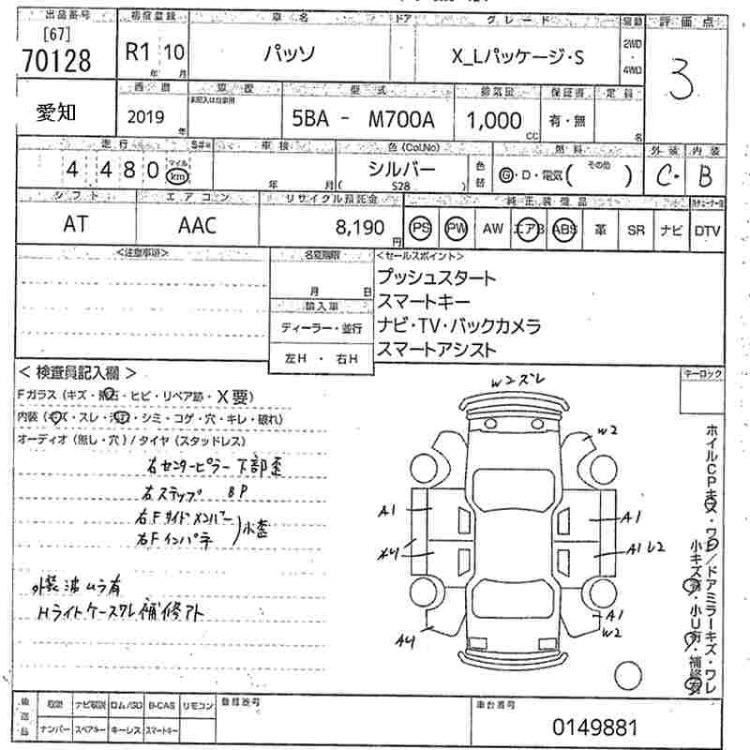 出品番号 初度登録 車名 ドア グレード 駆動 評価点
[67]
70128 R1年 10月 パッソ X_Lパッケージ・S 2WD・4WD 3
西暦 車歴 型式 排気量 保証書 定員
愛知 2019年 未記入は自家用 5BA - M700A 1,000cc 有・無 名
走行 車検 色(Col.No) 燃料 外装 内装
4 480 マイル km 年 月 シルバー ( S28 ) 色替 G・D・電気( その他 ) C・ B
シフト エアコン リサイクル預託金 純正装備品
AT AAC 8,190円 PS PW AW エアB ABS 革 SR ナビ DTV
<注意事項> 名変期限 <セールスポイント>
月 日 プッシュスタート
輸入車 スマートキー
ディーラー・並行 ナビ・TV・バックカメラ
左H・右H スマートアシスト
<検査員記入欄> テーロック
Fガラス(キズ・飛石・ヒビ・リペア跡・X要)
内装(キズ・スレ・汚れ・シミ・コゲ・穴・キレ・破れ)
オーディオ(無し・穴)/タイヤ(スタッドレス)
右センターピラー下部歪
右ステップ BP
右Fサイドメンバー
右Fインパネ )小歪
外装波ムラ有
Hライトケースワレ補修アト
W2ズレ
W2
A1
A1
A1 U2
A1
W2
A4
ホイルCPキズ・ワレ/ドアミラーキズ・ワレ
小キズ有・小U有・補修有
後送品 取説 ナビ取説 ロム/SD B-CAS リモコン 登録番号 車台番号
ナンバー スペアキー キーレス スマートキー 0149881